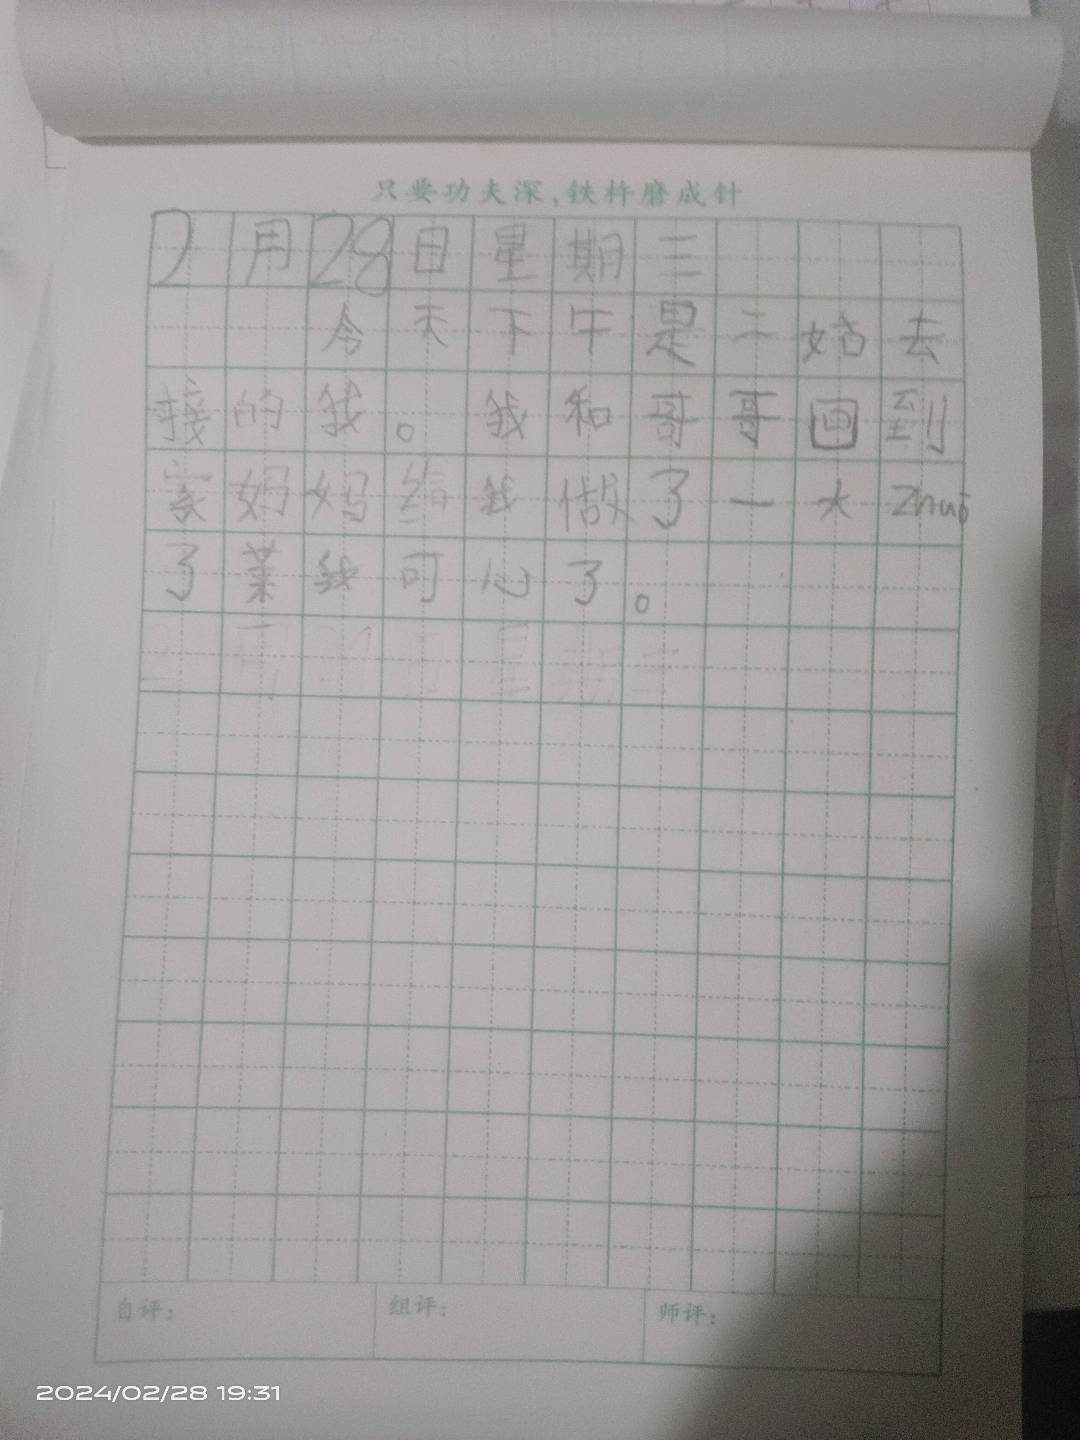 只要功夫深,铁杵磨成针
2月28日星期三
今天下午是二姑去
接的我。我和哥哥回到
家妈妈给我做了一大zhuō
了菜我可心了。
月 日星期三
自评:
组评:
师评:
2024/02/28 19:31